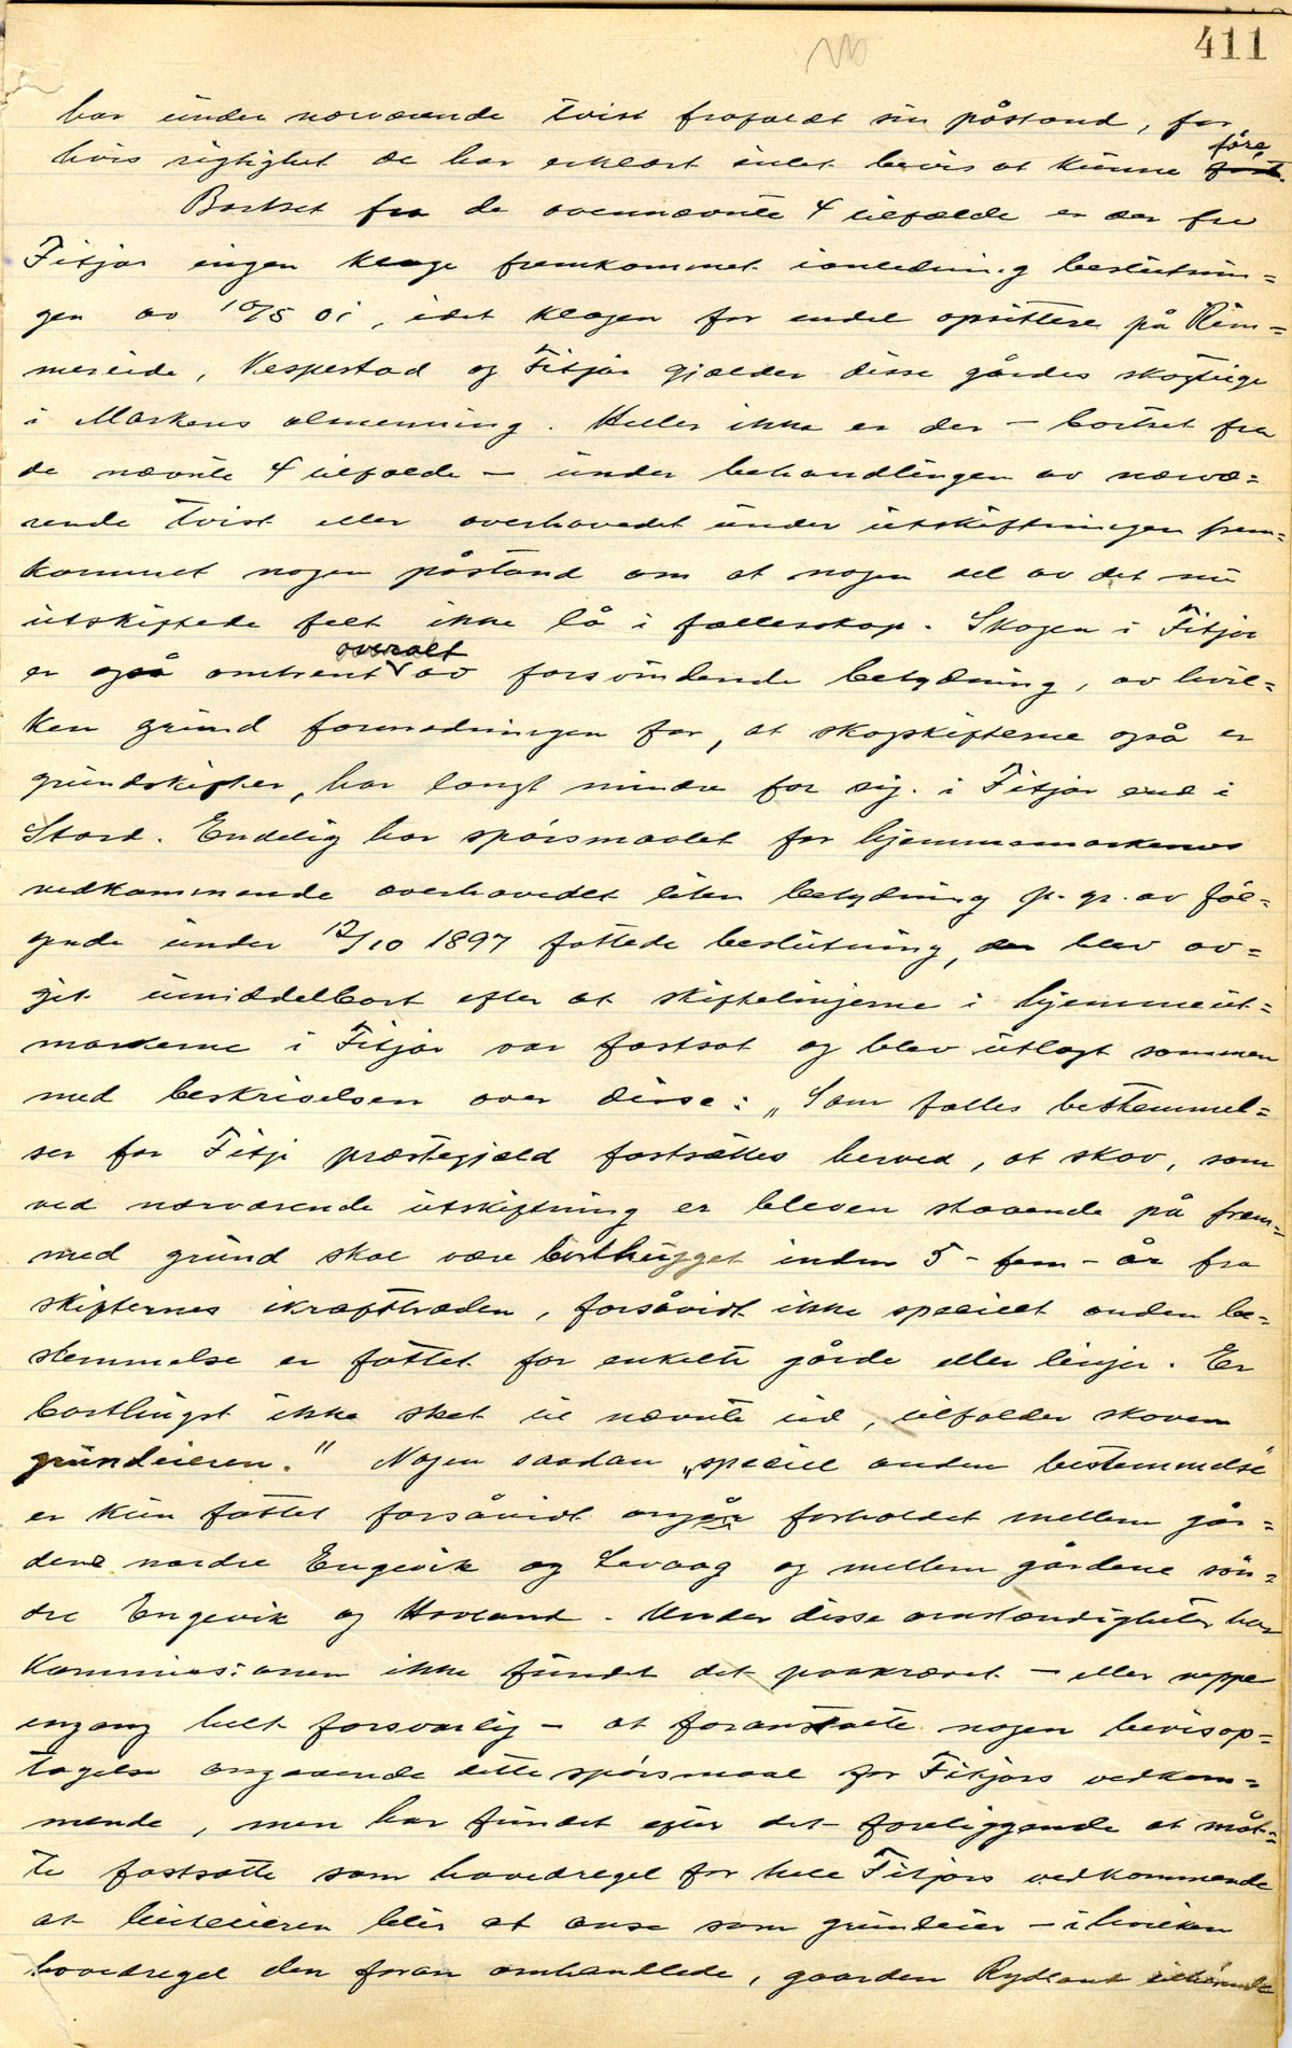 411
har under nærværende tvist frafaldt sin påstand, for
hvis rigtighet de har erklært intet bevis at kunne føre.
Bortset fra de ovennævnte 4 tilfælde er der fra
Fitjar ingen klage fremkommet ianledning beslutnin=
gen av 10/5 01, idet klagen for endel opsittere på Rim=
mereide, Vespestad og Fitjar gjælder disse gårdes skogteige
i Markens almenning. Heller ikke er der – bortset fra
de nævnte 4 tilfælde – under behandlingen av nærvæ=
rende tvist eller overhovedet under utskiftningen frem=
kommet nogen påstand om at nogen del av det nu
utskiftede felt ikke lå i fællesskap. Skogen i Fitjar
er også omtrent overalt av forsvindende betydning, av hvil=
ken grund formodningen for, at skogskifterne også er
grundskifter, har langt mindre for sig i Fitjar end i
Stord. Endelig har spørsmaalet for hjemmemarkenes
vedkommende overhovedet liten betydning p. gr. av føl=
gende under 12/10 1897 fattede beslutning, der blev av=
git umiddelbart efter at skiftelinjerne i hjemmeut=
markerne i Fitjar var fastsat og blev utlagt sammen
med beskrivelsen over disse: „Som fælles bestemmel=
ser for Fitje præstegjæld fastsættes herved, at skov, som
ved nærværende utskiftning er bleven staaende på frem=
med grund skal være borthugget inden 5 – fem – år fra
skifternes ikrafttræden, forsåvidt ikke specielt anden be=
stemmelse er fattet for enkelte gårde eller linjer. Er
borthugst ikke sket til nævnte tid, tilfalder skoven
grundeieren." Nogen saadan „speciel anden bestemmelse"
er kun fattet forsåvidt angår forholdet mellem går=
dene nordre Engevik og Levaag og mellem gårdene søn=
dre Engevik og Hovland. Under disse omstændigheter har
Kommissionen ikke fundet det paakrævet – eller neppe
engang helt forsvarlig – at foranstalte nogen bevisop=
tagelse angaaende dette spørsmaal for Fitjars vedkom=
mende, men har fundet efter det foreliggende at måt=
te fastsætte som hovedregel for hele Fitjars vedkommende
at teigeieren blir at anse som grundeier – i hvilken
hovedregel den foran omhandlede, gaarden Rydland tilhørende